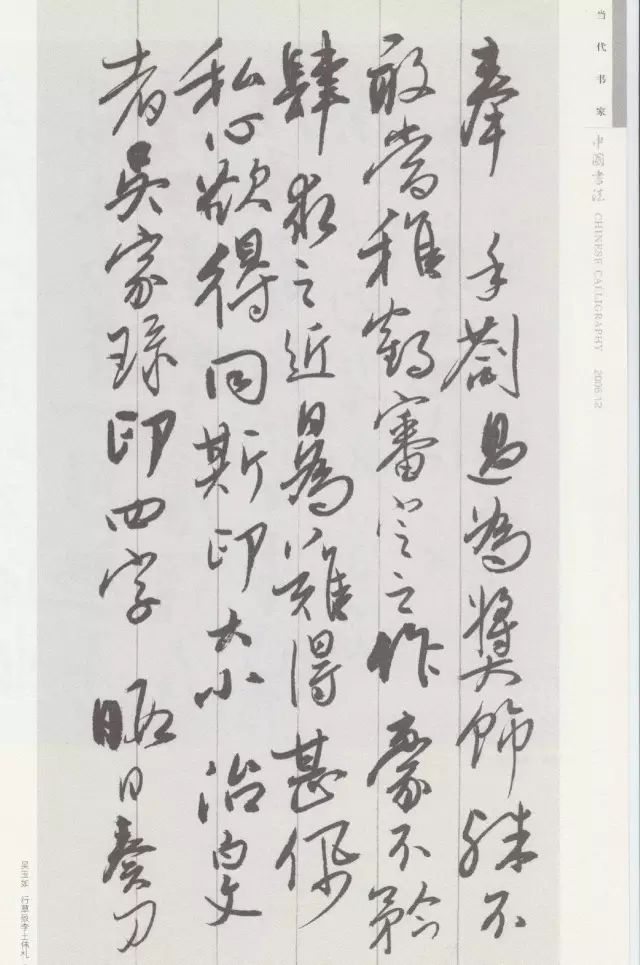 当代书家
中国书法 CHINESE CALLIGRAPHY 2006.12
奉 手劄過為獎飾殊不
敢當稚鶴審定之作豪不矜
肆求之近日為難得甚佩
私心欲得同斯印大小治白文
者吳家琭印四字 暇日奏刀
吴玉如 行草致李士伟札